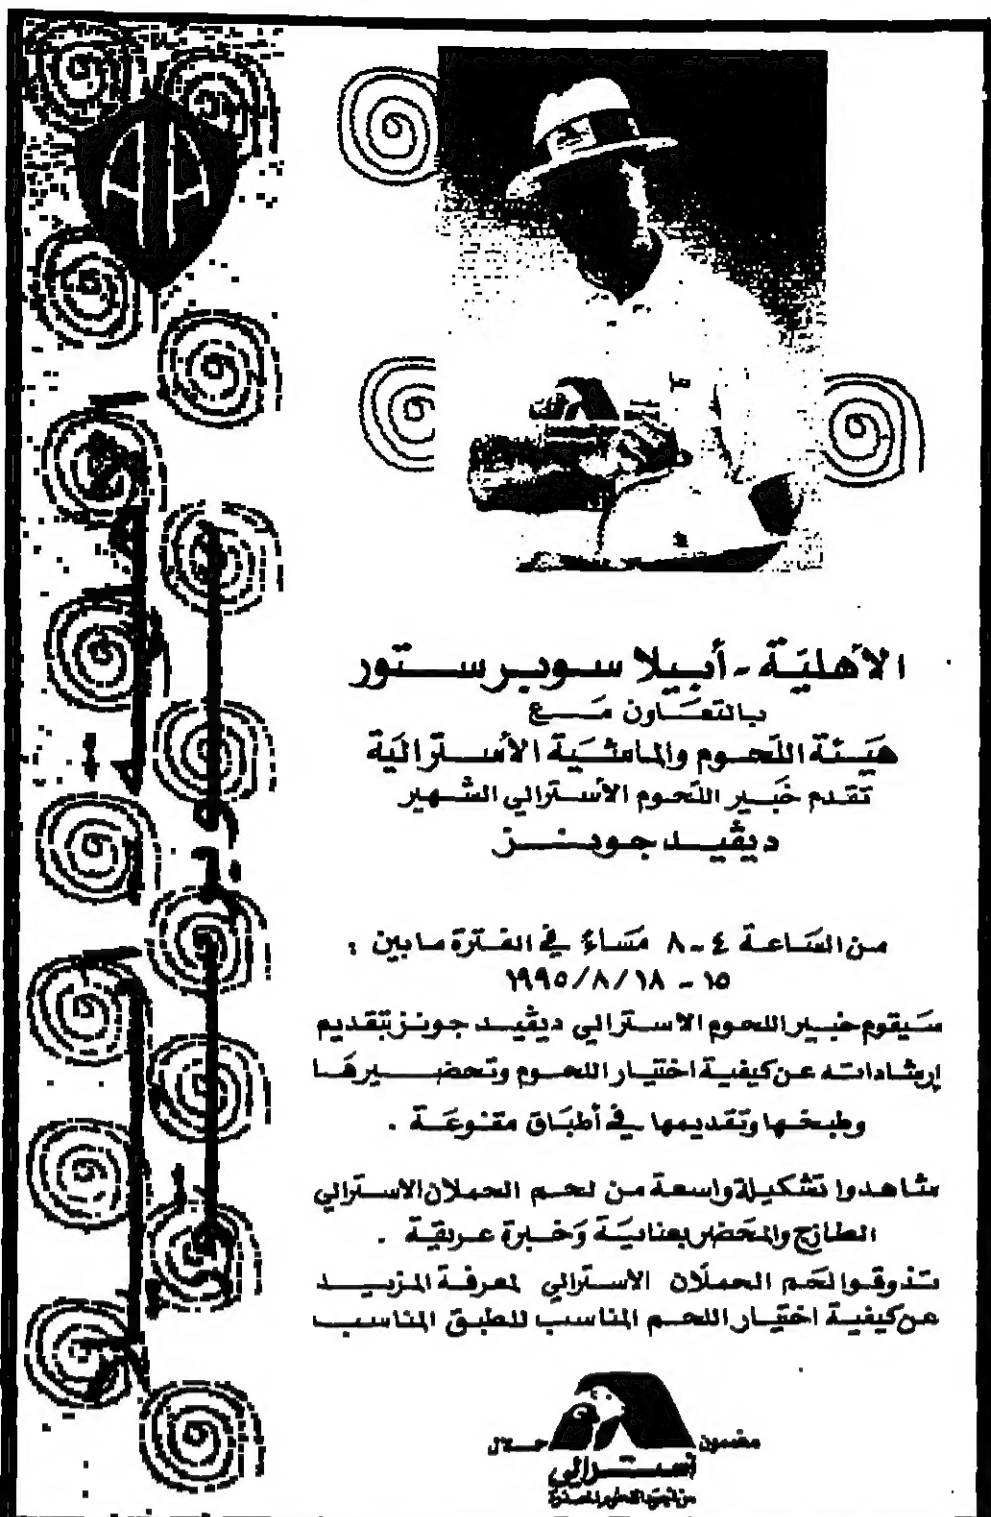 الأهليَة - أبيلا سوبرستور
بالتعَاون مَع
هيَئة اللحوم والماشيَة الأسترالَية
تقدم خَبير اللحوم الأسترالي الشهير
ديڤيد جونز
من السَاعة ٤ - ٨ مَساءً في الفترة ما بين :
١٥ - ١٩٩٥/٨/١٨
سَيقوم خبير اللحوم الاسترالي ديڤيد جونز بتقديم
إرشاداته عن كيفية اختيار اللحوم وتحضيرهَا
وطبخها وتقديمها في أطبَاق متنوعَة .
شاهدوا تشكيلة واسعة من لحم الحملان الاسترالي
الطازج والمحَضر بعنايَة وَخبرة عريقة .
تذوقوا لَحم الحملَان الاسترالي لمعرفة المزيد
عن كيفية اختيار اللحم المناسب للطبق المناسب
مضمون حلال
أسترالي